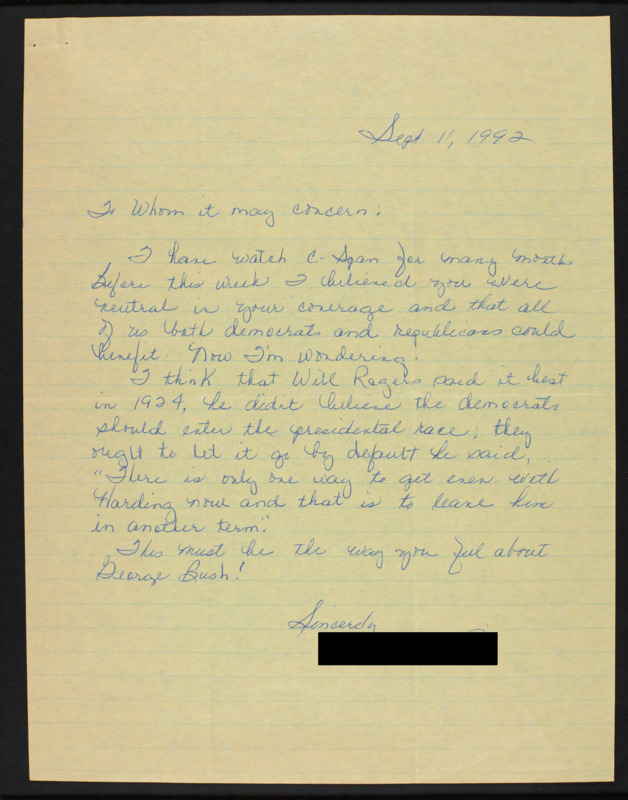 Sept. 11, 1992
To Whom it may concern:
I have watch C-Span for many months
Before this week I believed you were
neutral in your coverage and that all
of us both democrats and republicans could
benefit. Now I'm wondering.
I think that Will Rogers said it best
in 1924, he didn't believe the democrats
should enter the presidental race; they
ought to let it go by default he said,
"There is only one way to get even with
Harding now and that is to leave him
in another term."
This must be the way you feel about
George Bush!
Sincerely